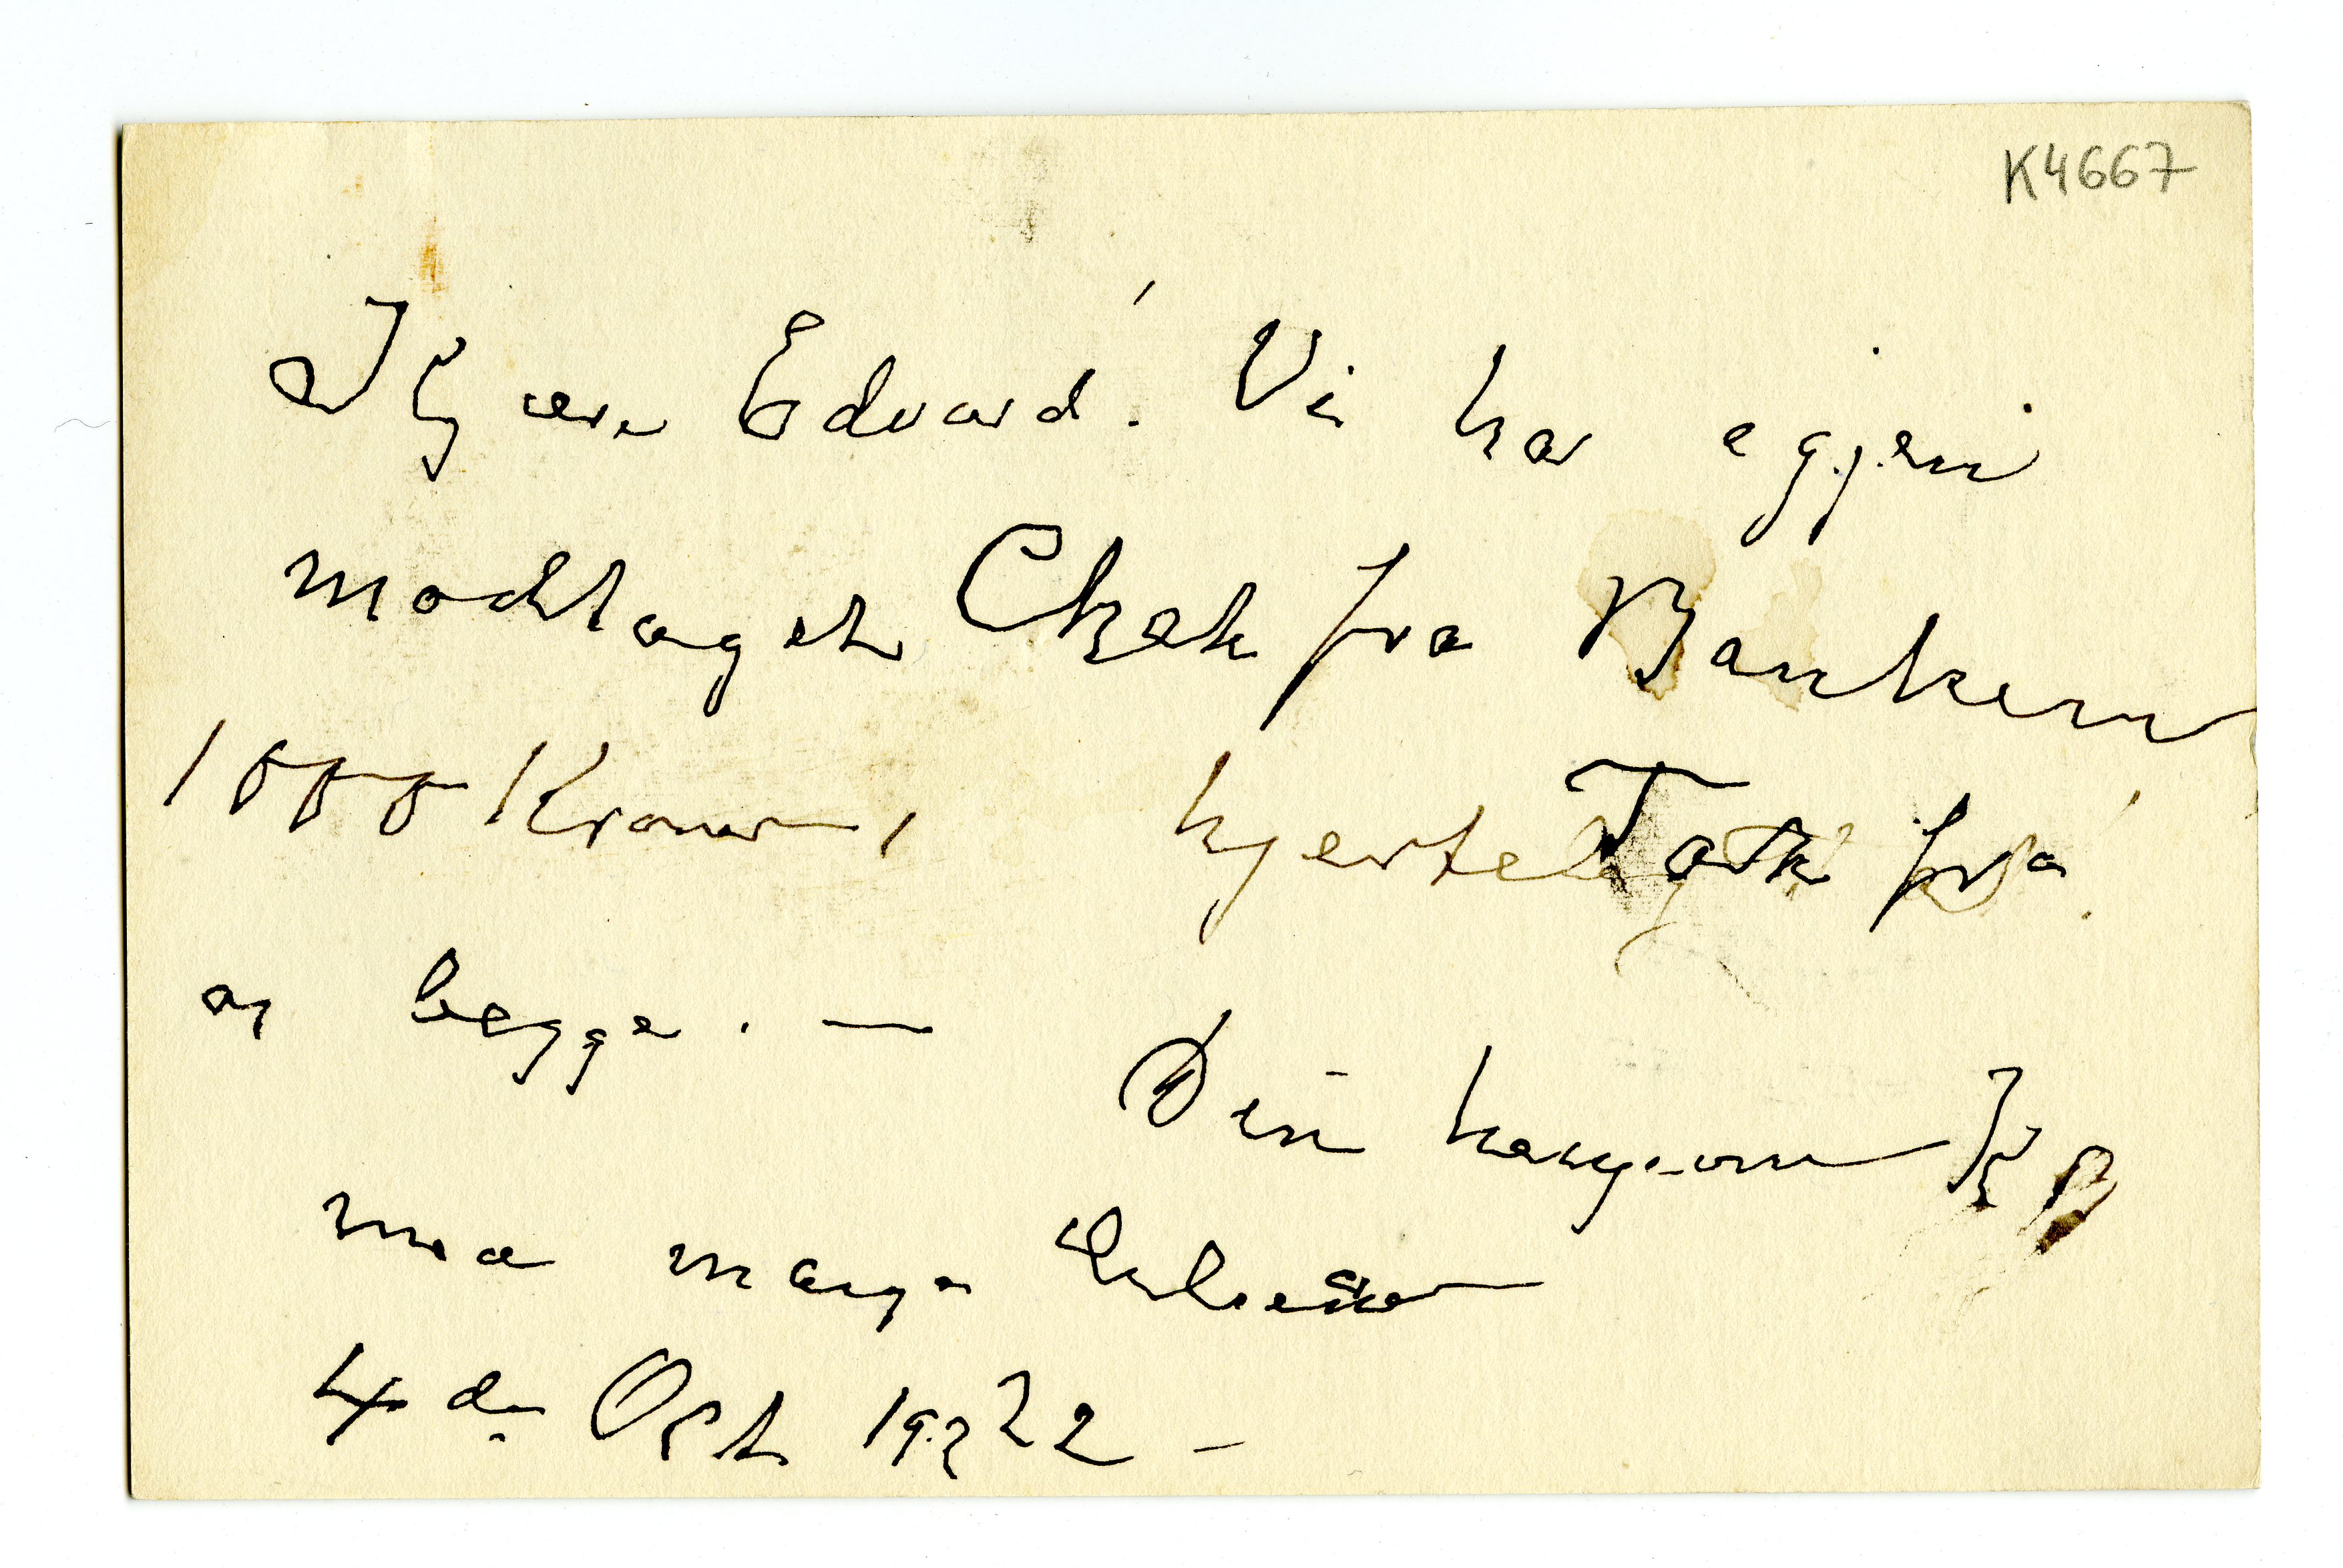 K4667
Kjære Edvard! Vi har egjen
modtaget Chek fra Banken
1000 Kroner, hjertelig Tak fra
os begge. —
Din hengivne
med mange Hilsener
4de Oct 1922 –